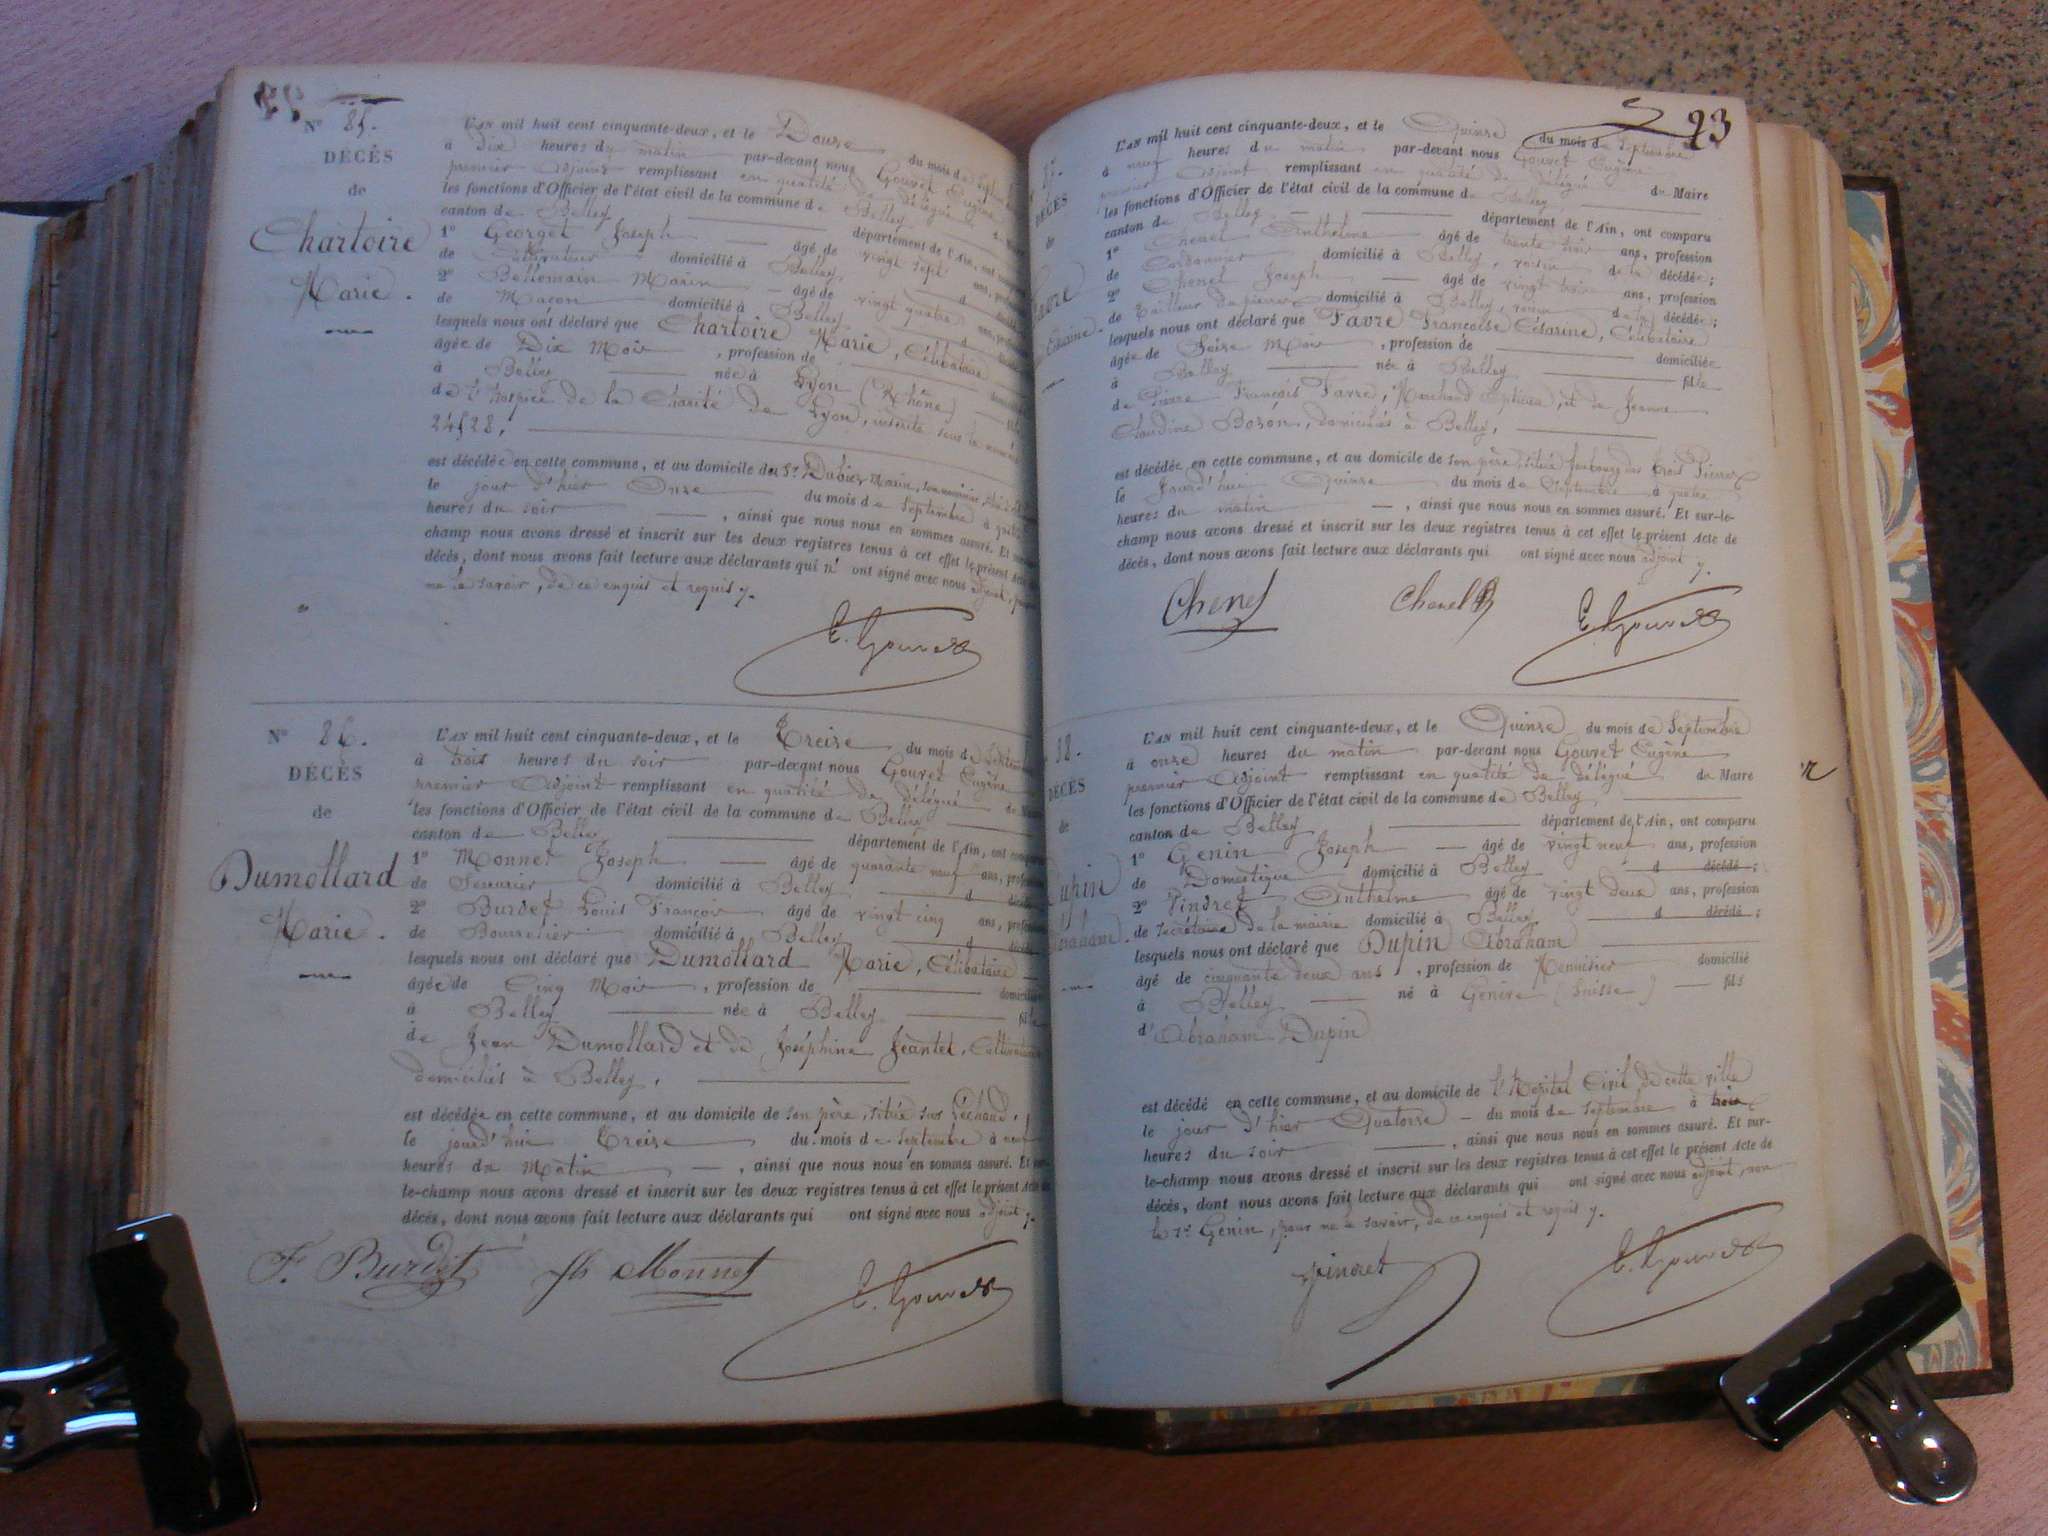 Nº 85.
DÉCÈS
de
Chartoire
Marie.
L'AN mil huit cent cinquante-deux, et le Douze du mois de
à Dix heures du matin par-devant nous Gouvet Eugène
premier Adjoint remplissant en qualité de délégué
les fonctions d'Officier de l'état civil de la commune de Belley
canton de Belley département de l'Ain, ont
1º Georget Joseph âgé de vingt sept
de Cultivateur domicilié à Belley
2º Bellemain Marin âgé de vingt quatre
de Maçon domicilié à Belley
lesquels nous ont déclaré que Chartoire Marie, Célibataire
âgée de Dix Mois, profession de
à Belley née à Lyon (Rhône)
de l'hospice de la Charité de Lyon, inscrite sous le
24528,
est décédée en cette commune, et au domicile du Sr
le jour d'hier Onze du mois de Septembre à
heures du soir, ainsi que nous nous en sommes assuré. Et
champ nous avons dressé et inscrit sur les deux registres tenus à cet effet le présent Acte
décès, dont nous avons fait lecture aux déclarants qui n' ont signé avec nous adjoint, pour
ne le savoir, de ce enquis et requis
E. Gouvet
Nº 86.
DÉCÈS
de
Dumollard
Marie.
L'AN mil huit cent cinquante-deux, et le Treize du mois de Septembre
à trois heures du soir par-devant nous Gouvet Eugène
premier Adjoint remplissant en qualité de délégué
les fonctions d'Officier de l'état civil de la commune de Belley
canton de Belley département de l'Ain, ont comparu
1º Monnet Joseph âgé de quarante neuf ans,
de Serrurier domicilié à Belley
2º Burdet Louis François âgé de vingt cinq ans,
de Bourrelier domicilié à Belley
lesquels nous ont déclaré que Dumollard Marie, Célibataire
âgée de Cinq Mois, profession de
à Belley née à Belley fille
de Jean Dumollard et de Joséphine Jeantet, Cultivateurs
domiciliés à Belley,
est décédée en cette commune, et au domicile de son père, situé
le jourd'hui Treize du mois de Septembre à neuf
heures du Matin, ainsi que nous nous en sommes assuré. Et sur-
le-champ nous avons dressé et inscrit sur les deux registres tenus à cet effet le présent Acte
décès, dont nous avons fait lecture aux déclarants qui ont signé avec nous adjoint
F. Burdet Jh Monnet E. Gouvet
93
DÉCÈS
de
L'AN mil huit cent cinquante-deux, et le Quinze du mois de Septembre
à neuf heures du matin par-devant nous Gouvet Eugène
premier Adjoint remplissant en qualité de délégué du Maire
les fonctions d'Officier de l'état civil de la commune de Belley
canton de Belley département de l'Ain, ont comparu
1º Chenel Anthelme âgé de trente trois ans, profession
de Cordonnier domicilié à Belley, voisin de la décédée;
2º Chenel Joseph âgé de vingt trois ans, profession
de Tailleur de pierres domicilié à Belley, voisin de la décédée;
lesquels nous ont déclaré que Favre Françoise Césarine, Célibataire
âgée de Seize Mois, profession de domiciliée
à Belley née à Belley fille
de François Favre, Marchand et de Jeanne
Claudine Bozon, domiciliés à Belley,
est décédée en cette commune, et au domicile de son père, situé faubourg des trois Pierres
le Jourd'hui Quinze du mois de Septembre à quatre
heures du matin, ainsi que nous nous en sommes assuré. Et sur-le-
champ nous avons dressé et inscrit sur les deux registres tenus à cet effet le présent Acte de
décès, dont nous avons fait lecture aux déclarants qui ont signé avec nous adjoint
Chenel Chenel E. Gouvet
88.
DÉCÈS
de
Dupin
Abraham.
L'AN mil huit cent cinquante-deux, et le Quinze du mois de Septembre
à onze heures du matin par-devant nous Gouvet Eugène
premier Adjoint remplissant en qualité de délégué du Maire
les fonctions d'Officier de l'état civil de la commune de Belley
canton de Belley département de l'Ain, ont comparu
1º Genin Joseph âgé de vingt neuf ans, profession
de Domestique domicilié à Belley d décédé;
2º Pindret Anthelme âgé de vingt deux ans, profession
de secrétaire de la mairie domicilié à Belley d décédé;
lesquels nous ont déclaré que Dupin Abraham
âgé de cinquante deux ans, profession de Menuisier domicilié
à Belley né à Genève (Suisse) fils
d'Abraham Dupin
est décédé en cette commune, et au domicile de l'Hôpital Civil de cette ville
le jour d'hier Quatorze du mois de Septembre à trois
heures du soir, ainsi que nous nous en sommes assuré. Et sur-
le-champ nous avons dressé et inscrit sur les deux registres tenus à cet effet le présent Acte de
décès, dont nous avons fait lecture aux déclarants qui ont signé avec nous adjoint, non
le Sr Genin, pour ne le savoir, de ce enquis et requis
Pindret E. Gouvet